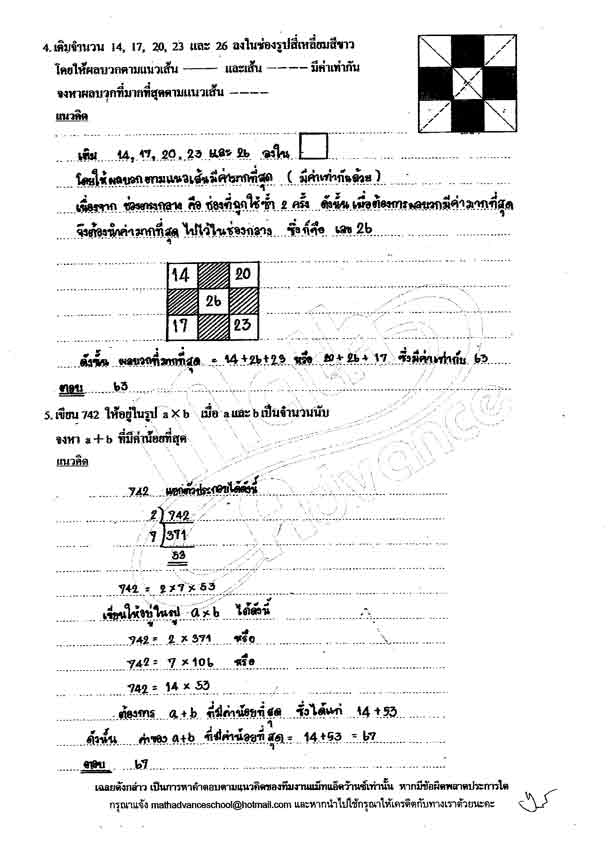 4. เติมจำนวน 14, 17, 20, 23 และ 26 ลงในช่องรูปสี่เหลี่ยมสีขาว
โดยให้ผลบวกตามแนวเส้น ——— และเส้น ---- มีค่าเท่ากัน
จงหาผลบวกที่มากที่สุดตามแนวเส้น ----
แนวคิด
เติม 14, 17, 20, 23 และ 26 ลงใน
โดยให้ผลบวกตามแนวเส้นมีค่ามากที่สุด ( มีค่าเท่ากันด้วย )
เนื่องจาก ช่องตรงกลาง คือ ช่องที่ถูกใช้ซ้ำ 2 ครั้ง ดังนั้น เพื่อต้องการผลบวกมีค่ามากที่สุด
จึงต้องนำค่ามากที่สุด ไปไว้ในช่องกลาง ซึ่งก็คือ เลข 26
14 20
26
17 23
ดังนั้น ผลบวกที่มากที่สุด = 14+26+23 หรือ 20+26+17 ซึ่งมีค่าเท่ากับ 63
ตอบ 63
5. เขียน 742 ให้อยู่ในรูป a×b เมื่อ a และ b เป็นจำนวนนับ
จงหา a+b ที่มีค่าน้อยที่สุด
แนวคิด
742 แยกตัวประกอบได้ดังนี้
2) 742
7) 371
53
742 = 2×7×53
เขียนให้อยู่ในรูป a×b ได้ดังนี้
742 = 2 × 371 หรือ
742 = 7 × 106 หรือ
742 = 14 × 53
ต้องการ a+b ที่มีค่าน้อยที่สุด ซึ่งได้แก่ 14+53
ดังนั้น ค่าของ a+b ที่มีค่าน้อยที่สุด = 14+53 = 67
ตอบ 67
Math Advance
เฉลยดังกล่าว เป็นการหาคำตอบตามแนวคิดของทีมงานแม็ทแอ็ดว้านซ์เท่านั้น หากมีข้อผิดพลาดประการใด
กรุณาแจ้ง mathadvanceschool@hotmail.com และหากนำไปใช้กรุณาให้เครดิตกับทางเราด้วยนะคะ